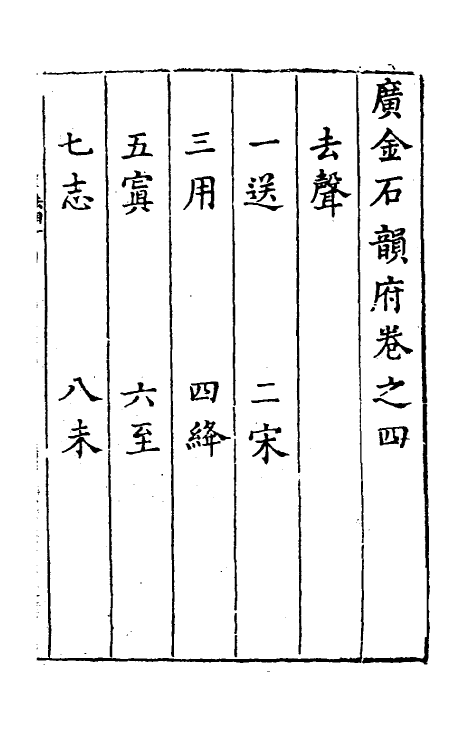 廣金石韻府卷之四
去聲
一送 二宋
三用 四絳
五寘 六至
七志 八未